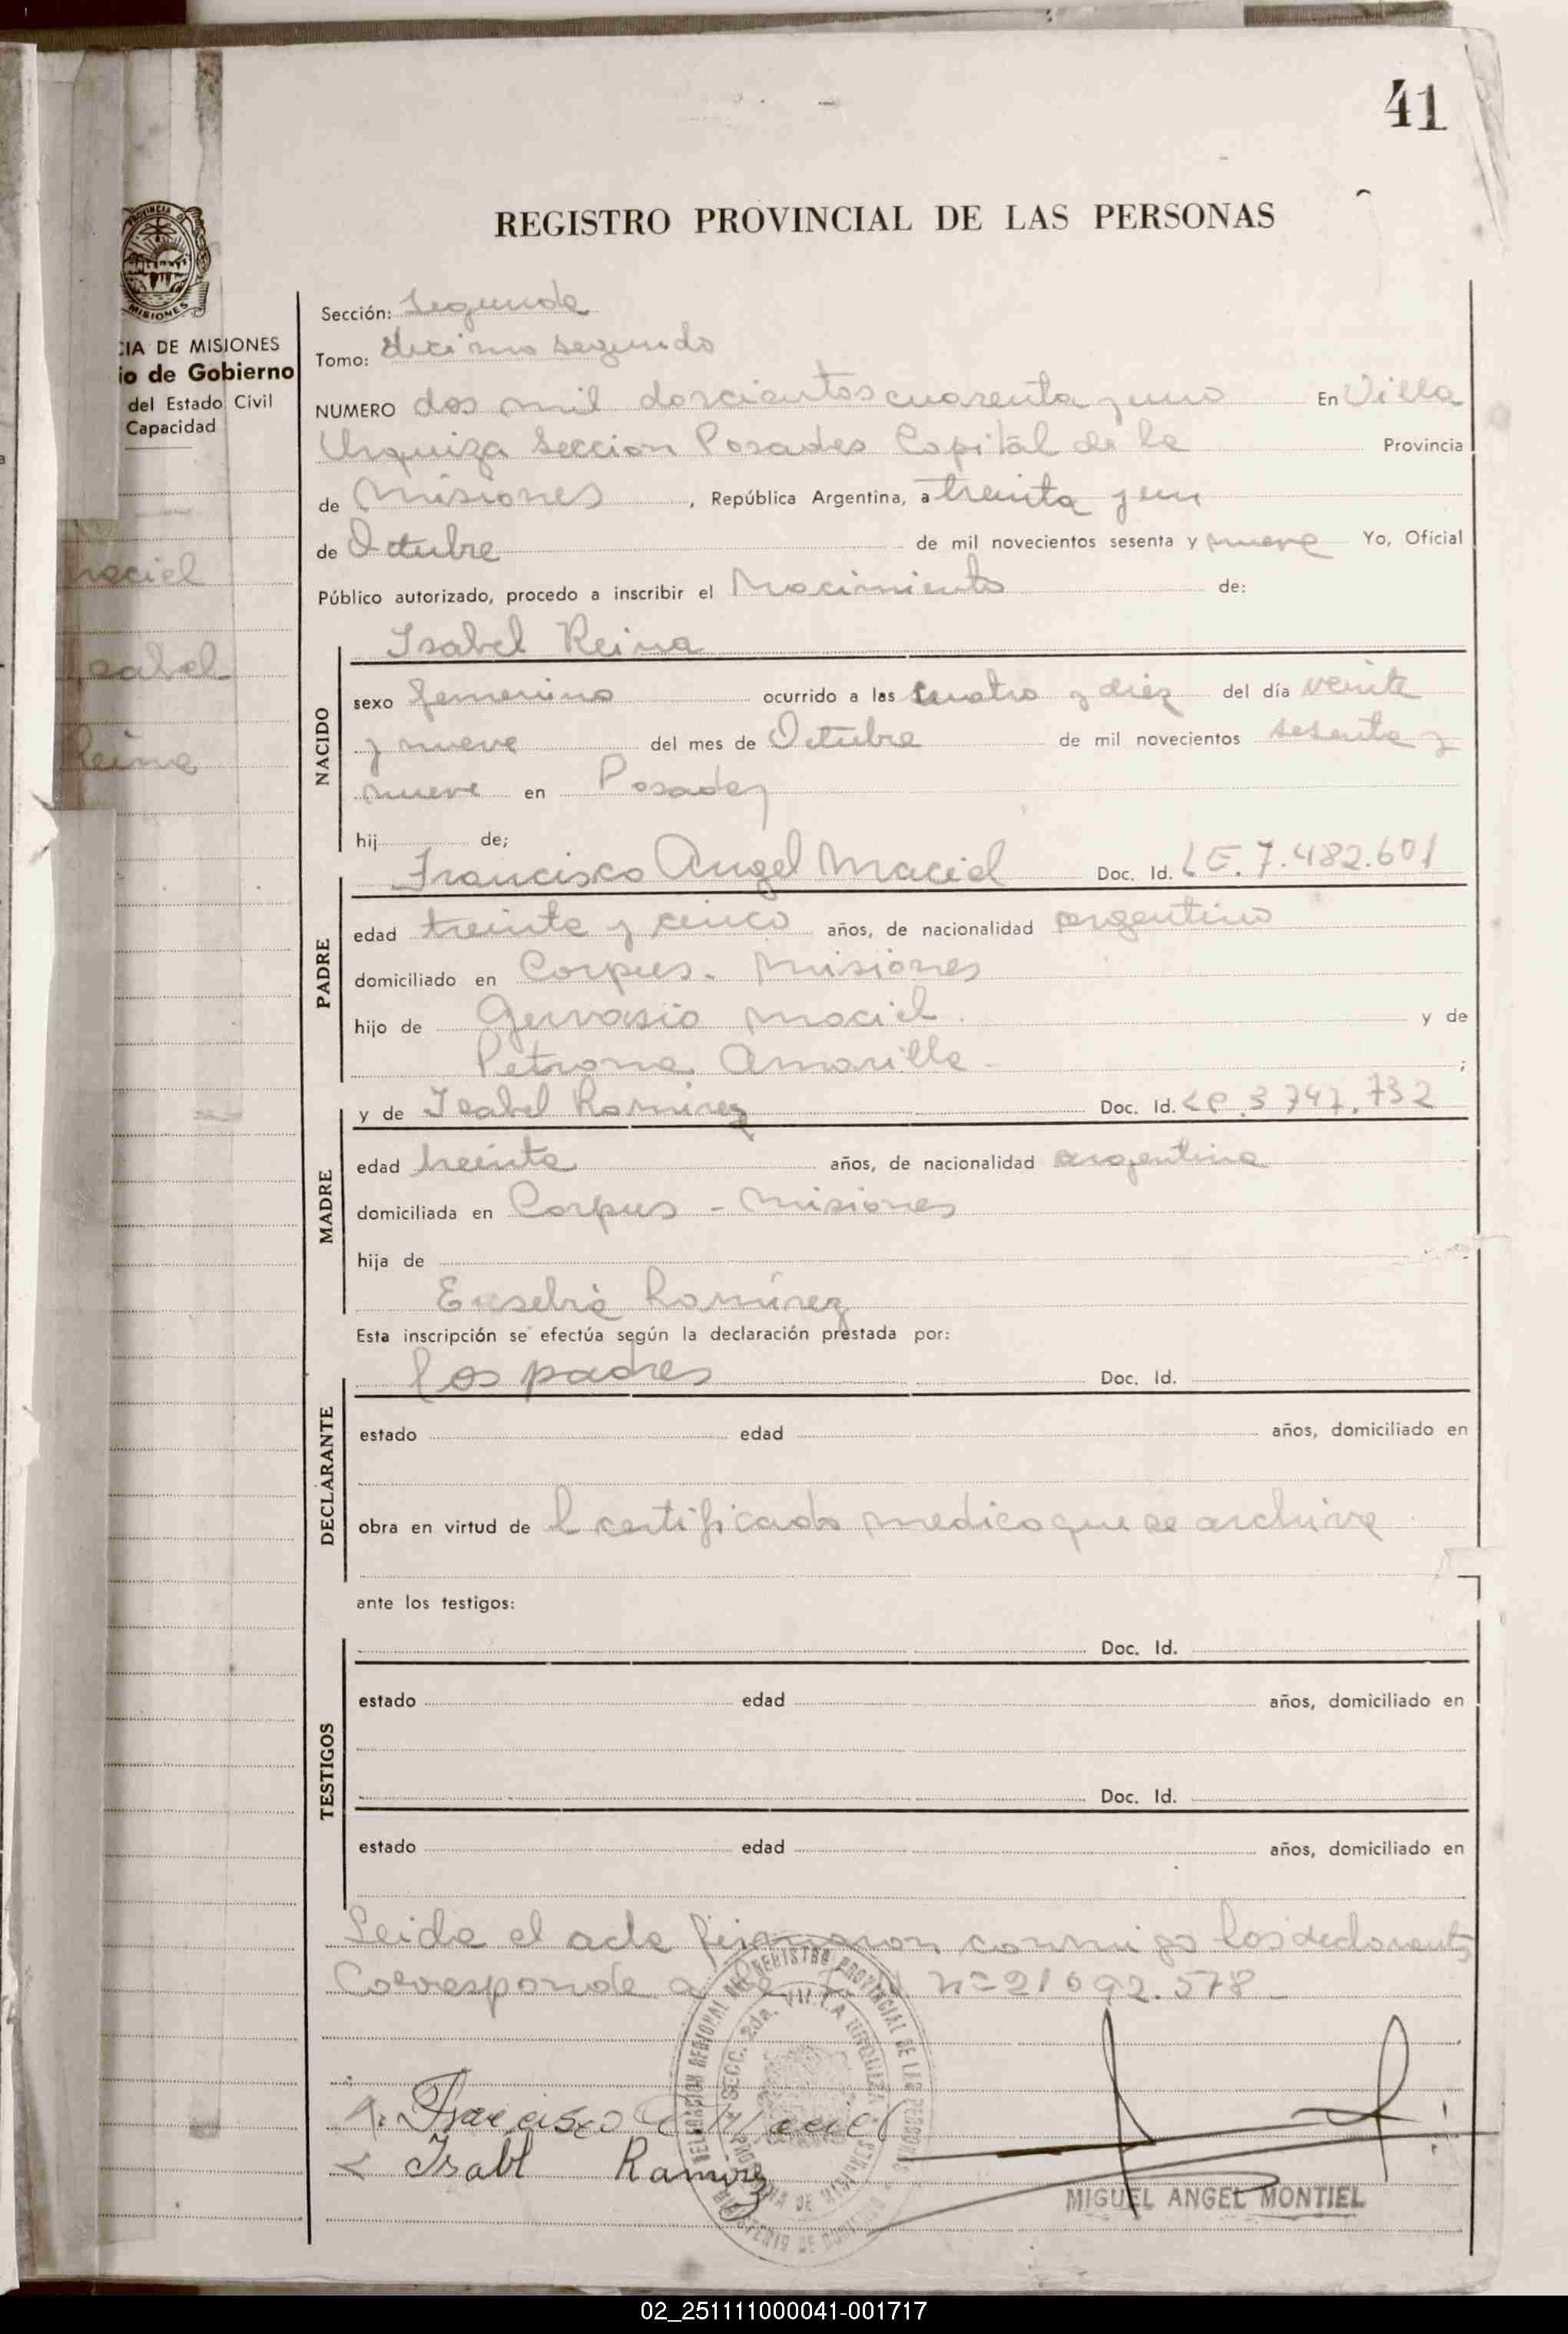 41
REGISTRO PROVINCIAL DE LAS PERSONAS
PROVINCIA D
MISIONES
CIA DE MISIONES
io de Gobierno
del Estado Civil
Capacidad
maciel
sabel
Reina
Sección: Segunda
Tomo: décimo segundo
NUMERO dos mil doscientos cuarenta y uno En Villa
Urquiza Seccion Posadas Capital de la Provincia
de Misiones, República Argentina, a treinta y un
de Octubre de mil novecientos sesenta y nueve Yo, Oficial
Público autorizado, procedo a inscribir el Nacimiento de:
Isabel Reina
NACIDO
sexo femenino ocurrido a las cuatro y diez del día veinte
y nueve del mes de Octubre de mil novecientos sesenta y
nueve en Posadas
hij de;
Francisco Angel Maciel Doc. Id. LE. 7.482.601
PADRE
edad treinta y cinco años, de nacionalidad argentino
domiciliado en Corpus - Misiones
hijo de Gervasio Maciel y de
Petrona Amarilla ;
y de Isabel Ramirez Doc. Id. LC. 3 747.732
MADRE
edad treinta años, de nacionalidad argentina
domiciliada en Corpus - Misiones
hija de
Eusebia Ramirez
Esta inscripción se efectúa según la declaración prestada por:
los padres Doc. Id.
DECLARANTE
estado edad años, domiciliado en
obra en virtud de l certificado medico que se archiva
ante los testigos:
Doc. Id.
TESTIGOS
estado edad años, domiciliado en
Doc. Id.
estado edad años, domiciliado en
Leida el acta firmaron conmigo los declarantes
Corresponde a nº 21 092.578
DELEGACION REGIONAL DEL REGISTRO PROVINCIAL DE LAS PERSONAS
SECC. 2da. VILLA URQUIZA
Francisco A Maciel
Isabl Ramirez
MIGUEL ANGEL MONTIEL
02_251111000041-001717